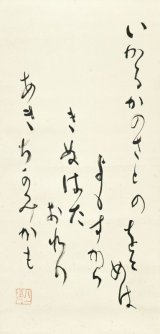 いかるかのさとのをと
めは
よもすから
きぬはたおれり
あきちかみかも